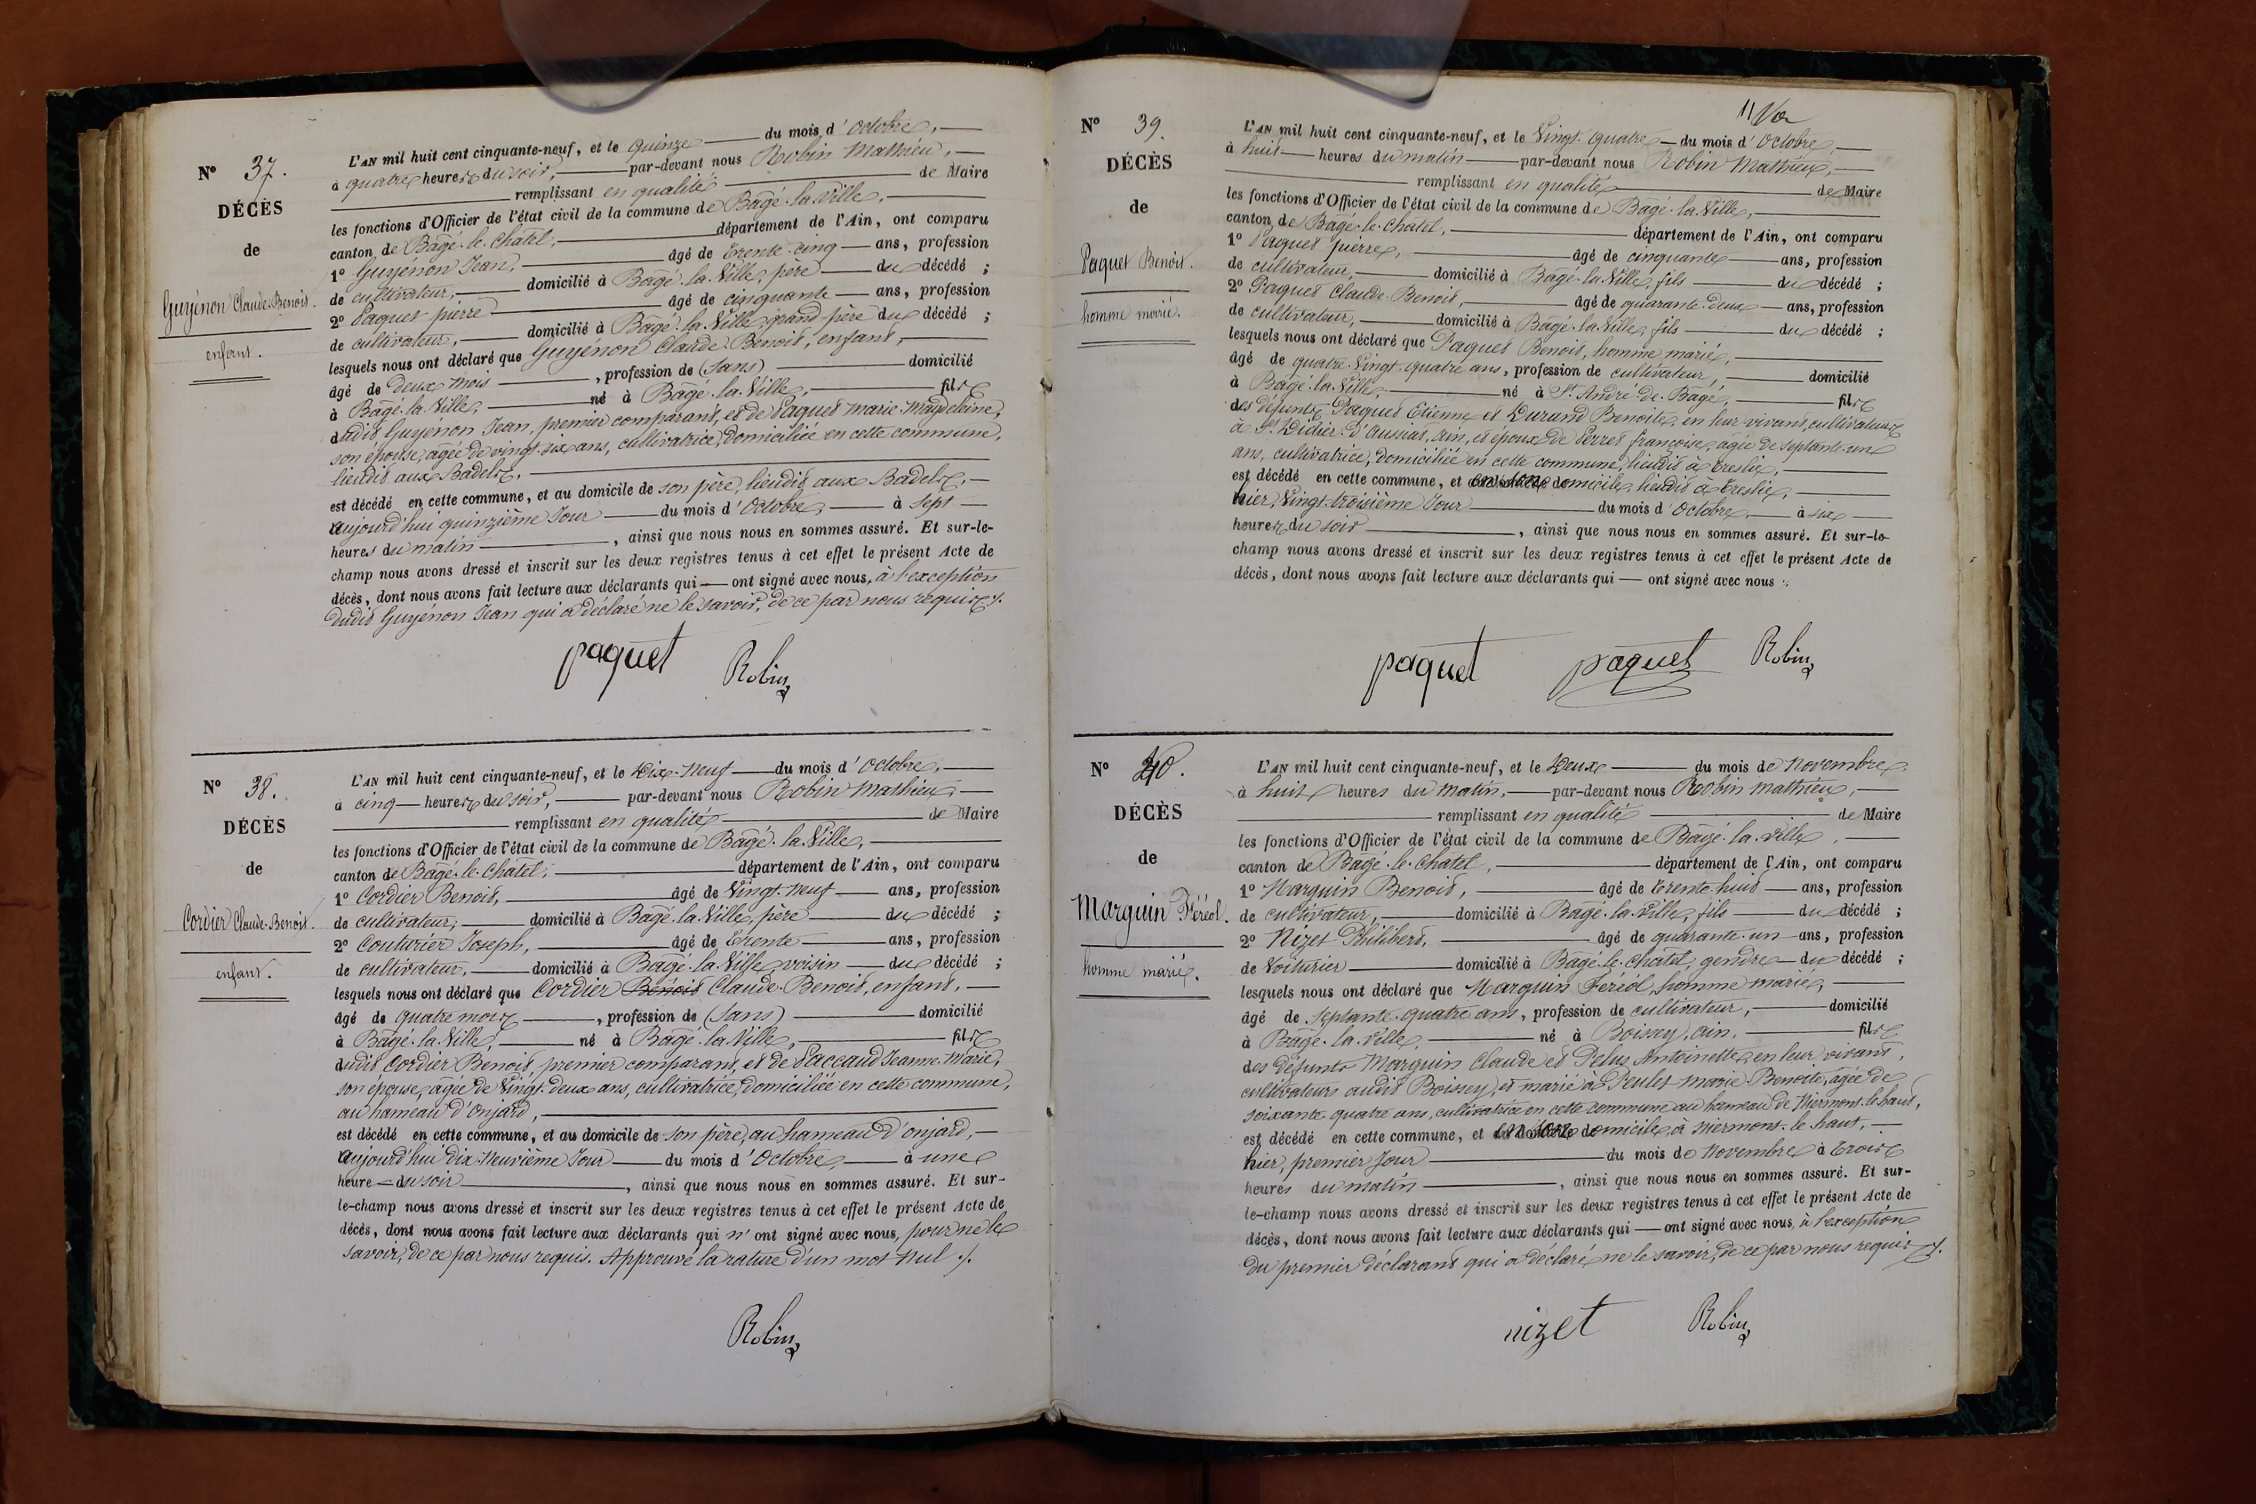 N° 37.
DÉCÈS
de
Guyénon Claude-Benoit.
enfant.
L'AN mil huit cent cinquante-neuf, et le quinze du mois d'octobre,
à quatre heures du soir, par-devant nous Robin Mathieu,
remplissant en qualité de Maire
les fonctions d'Officier de l'état civil de la commune de Bagé-la-Ville,
canton de Bagé-le-Chatel, département de l'Ain, ont comparu
1° Guyénon Jean, âgé de trente-cinq ans, profession
de cultivateur, domicilié à Bagé-la-Ville, père du décédé ;
2° Paquet pierre âgé de cinquante ans, profession
de cultivateur, domicilié à Bagé-la-Ville, grand-père du décédé ;
lesquels nous ont déclaré que Guyénon Claude-Benoit, enfant,
âgé de deux mois, profession de (sans) domicilié
à Bagé-la-Ville, né à Bagé-la-Ville, fils
dudit Guyénon Jean, premier comparant, et de Paquet Marie-Magdeleine,
son épouse, agée de vingt-six ans, cultivatrice, domiciliée en cette commune,
lieudit aux Badels,
est décédé en cette commune, et au domicile de son père, lieudit aux Badels,
aujourd'hui quinzième Jour du mois d'octobre, à sept
heures du matin, ainsi que nous nous en sommes assuré. Et sur-le-
champ nous avons dressé et inscrit sur les deux registres tenus à cet effet le présent Acte de
décès, dont nous avons fait lecture aux déclarants qui ont signé avec nous, à l'exception
dudit Guyénon Jean qui a déclaré ne le savoir, de ce par nous requis ./.
paquet Robin
N° 38.
DÉCÈS
de
Cordier Claude-Benoit.
enfant.
L'AN mil huit cent cinquante-neuf, et le Dix-Neuf du mois d'octobre,
à cinq heures du soir, par-devant nous Robin Mathieu,
remplissant en qualité de Maire
les fonctions d'Officier de l'état civil de la commune de Bagé-la-Ville,
canton de Bagé-le-Chatel, département de l'Ain, ont comparu
1° Cordier Benoit, âgé de Vingt-neuf ans, profession
de cultivateur, domicilié à Bagé-la-Ville, père du décédé ;
2° Couturier Joseph, âgé de trente ans, profession
de cultivateur, domicilié à Bagé-la-Ville, voisin du décédé ;
lesquels nous ont déclaré que Cordier Benoit Claude-Benoit, enfant,
âgé de quatre mois, profession de (sans) domicilié
à Bagé-la-Ville, né à Bagé-la-Ville, fils
dudit Cordier Benoit, premier comparant, et de Paccaud Jeanne-Marie,
son épouse, agée de Vingt-deux ans, cultivatrice, domiciliée en cette commune,
au hameau d'onjard,
est décédé en cette commune, et au domicile de son père, au hameau d'onjard,
aujourd'hui dix-neuvième Jour du mois d'octobre, à une
heure du soir, ainsi que nous nous en sommes assuré. Et sur-
le-champ nous avons dressé et inscrit sur les deux registres tenus à cet effet le présent Acte de
décès, dont nous avons fait lecture aux déclarants qui n'ont signé avec nous, pour ne le
savoir, de ce par nous requis. Approuvé la rature d'un mot nul ./.
Robin
N° 39.
DÉCÈS
de
Paquet Benoit.
homme marié.
L'AN mil huit cent cinquante-neuf, et le Vingt-quatre du mois d'octobre,
à huit heures du matin par-devant nous Robin Mathieu,
remplissant en qualité de Maire
les fonctions d'Officier de l'état civil de la commune de Bagé-la-Ville,
canton de Bagé-le-Chatel, département de l'Ain, ont comparu
1° Paquet pierre, âgé de cinquante ans, profession
de cultivateur, domicilié à Bagé-la-Ville, fils du décédé ;
2° Paquet Claude-Benoit, âgé de quarante-deux ans, profession
de cultivateur, domicilié à Bagé-la-Ville, fils du décédé ;
lesquels nous ont déclaré que Paquet Benoit, homme marié,
âgé de quatre-Vingt-quatre ans, profession de cultivateur, domicilié
à Bagé-la-Ville, né à St André-de-Bagé, fils
des défunts Paquet Etienne et Durand Benoite, en leur vivant cultivateurs
à St Didier-d'Aussiat, ain, et époux de Perret françoise, agée de septante-un
ans, cultivatrice, domiciliée en cette commune, lieudit à Treslie,
est décédé en cette commune, et en son domicile, lieudit à Treslie,
hier, Vingt-troisième Jour du mois d'octobre, à six
heures du soir, ainsi que nous nous en sommes assuré. Et sur-le-
champ nous avons dressé et inscrit sur les deux registres tenus à cet effet le présent Acte de
décès, dont nous avons fait lecture aux déclarants qui ont signé avec nous ./.
paquet paquet Robin
N° 40.
DÉCÈS
de
Marguin Féréol.
homme marié.
L'AN mil huit cent cinquante-neuf, et le Deux du mois de Novembre,
à huit heures du matin, par-devant nous Robin mathieu,
remplissant en qualité de Maire
les fonctions d'Officier de l'état civil de la commune de Bagé-la-Ville,
canton de Bagé-le-Chatel, département de l'Ain, ont comparu
1° Marguin Benoit, âgé de trente-huit ans, profession
de cultivateur, domicilié à Bagé-la-Ville, fils du décédé ;
2° Nizet Philibert, âgé de quarante-un ans, profession
de Voiturier domicilié à Bagé-le-Chatel, gendre du décédé ;
lesquels nous ont déclaré que Marguin Féréol, homme marié,
âgé de septante-quatre ans, profession de cultivateur, domicilié
à Bagé-la-Ville, né à Boissey, ain, fils
des défunts Marguin Claude et Pelus Antoinette, en leur vivant,
cultivateurs audit Boissey, et marié à Peulet Marie-Benoite, agée de
soixante-quatre ans, cultivatrice en cette commune au hameau de Miermont-le-haut,
est décédé en cette commune, et en son domicile, à Miermont-le-haut,
hier, premier Jour du mois de Novembre à trois
heures du matin, ainsi que nous nous en sommes assuré. Et sur-
le-champ nous avons dressé et inscrit sur les deux registres tenus à cet effet le présent Acte de
décès, dont nous avons fait lecture aux déclarants qui ont signé avec nous, à l'exception
du premier déclarant qui a déclaré ne le savoir, de ce par nous requis ./.
nizet Robin